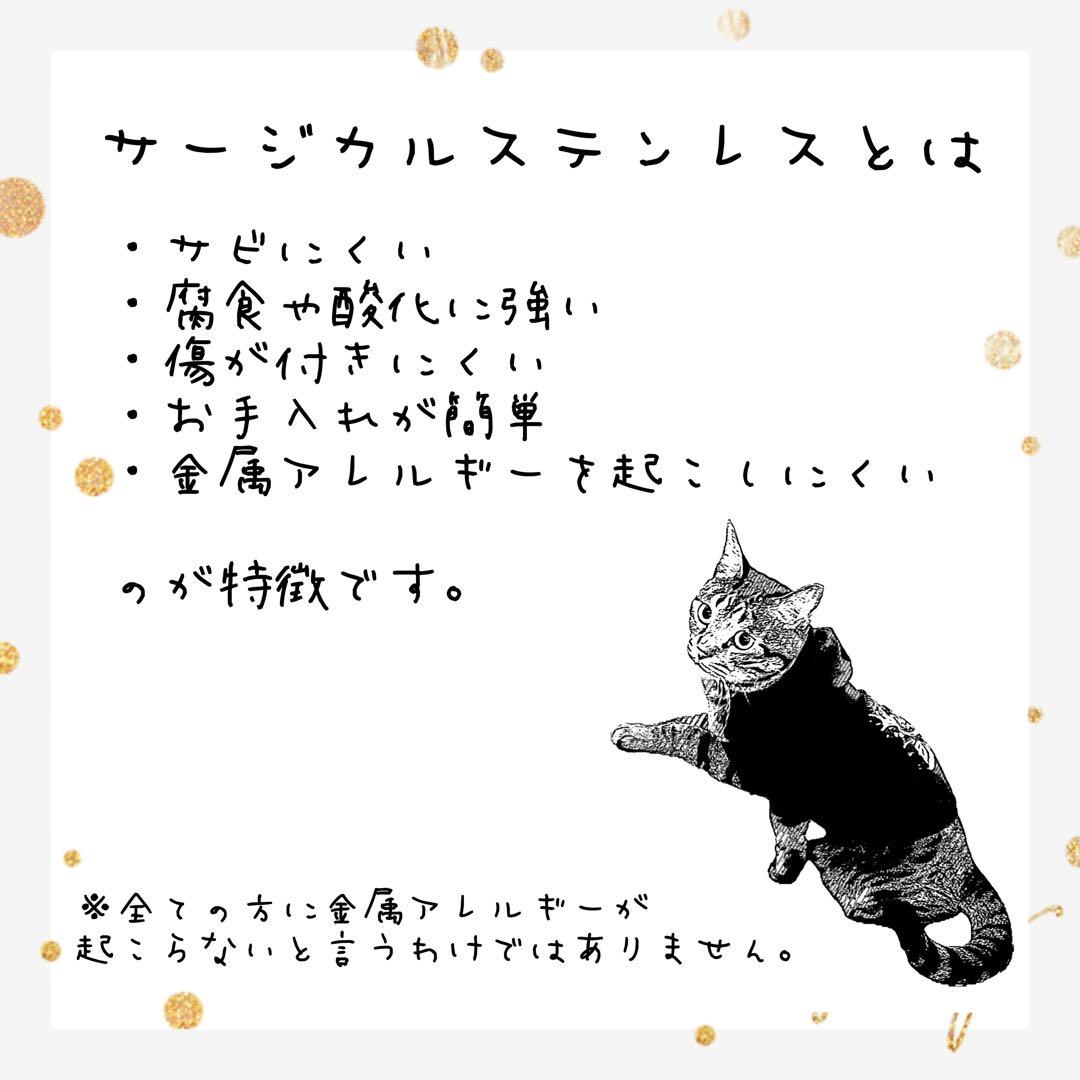 サージカルステンレスとは
・サビにくい
・腐食や酸化に強い
・傷が付きにくい
・お手入れが簡単
・金属アレルギーを起こしにくい
のが特徴です。
※全ての方に金属アレルギーが
起こらないと言うわけではありません。